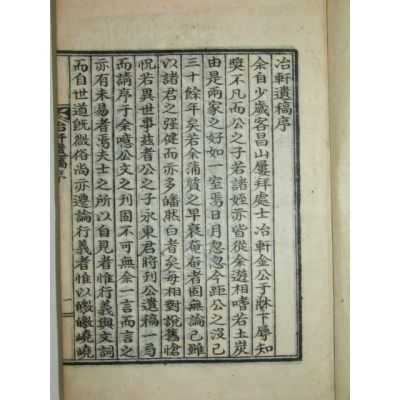 冶軒遺稿序
余自少歲客昌山屢拜處士冶軒金公于牀下辱知
奬不凡而公之子若諸姪亦皆從余遊相嗜若土炭
由是兩家之好如一室焉日月忽忽今距公之沒已
三十餘年矣若余蒲質之早衰奄奄者固無論已雖
以諸君之强健而亦多皤然白者矣每相對說舊愴
怳若異世事玆者公之子永東君將刊公遺稿一
而請序于余噫公文之刊固不可無余一言而言之
亦有未易者焉夫士之所以自見者惟行義與文詞
而自世道旣微俗尚亦遷論行義者惟以皦皦嶢嶢
冶軒遺稿序
一